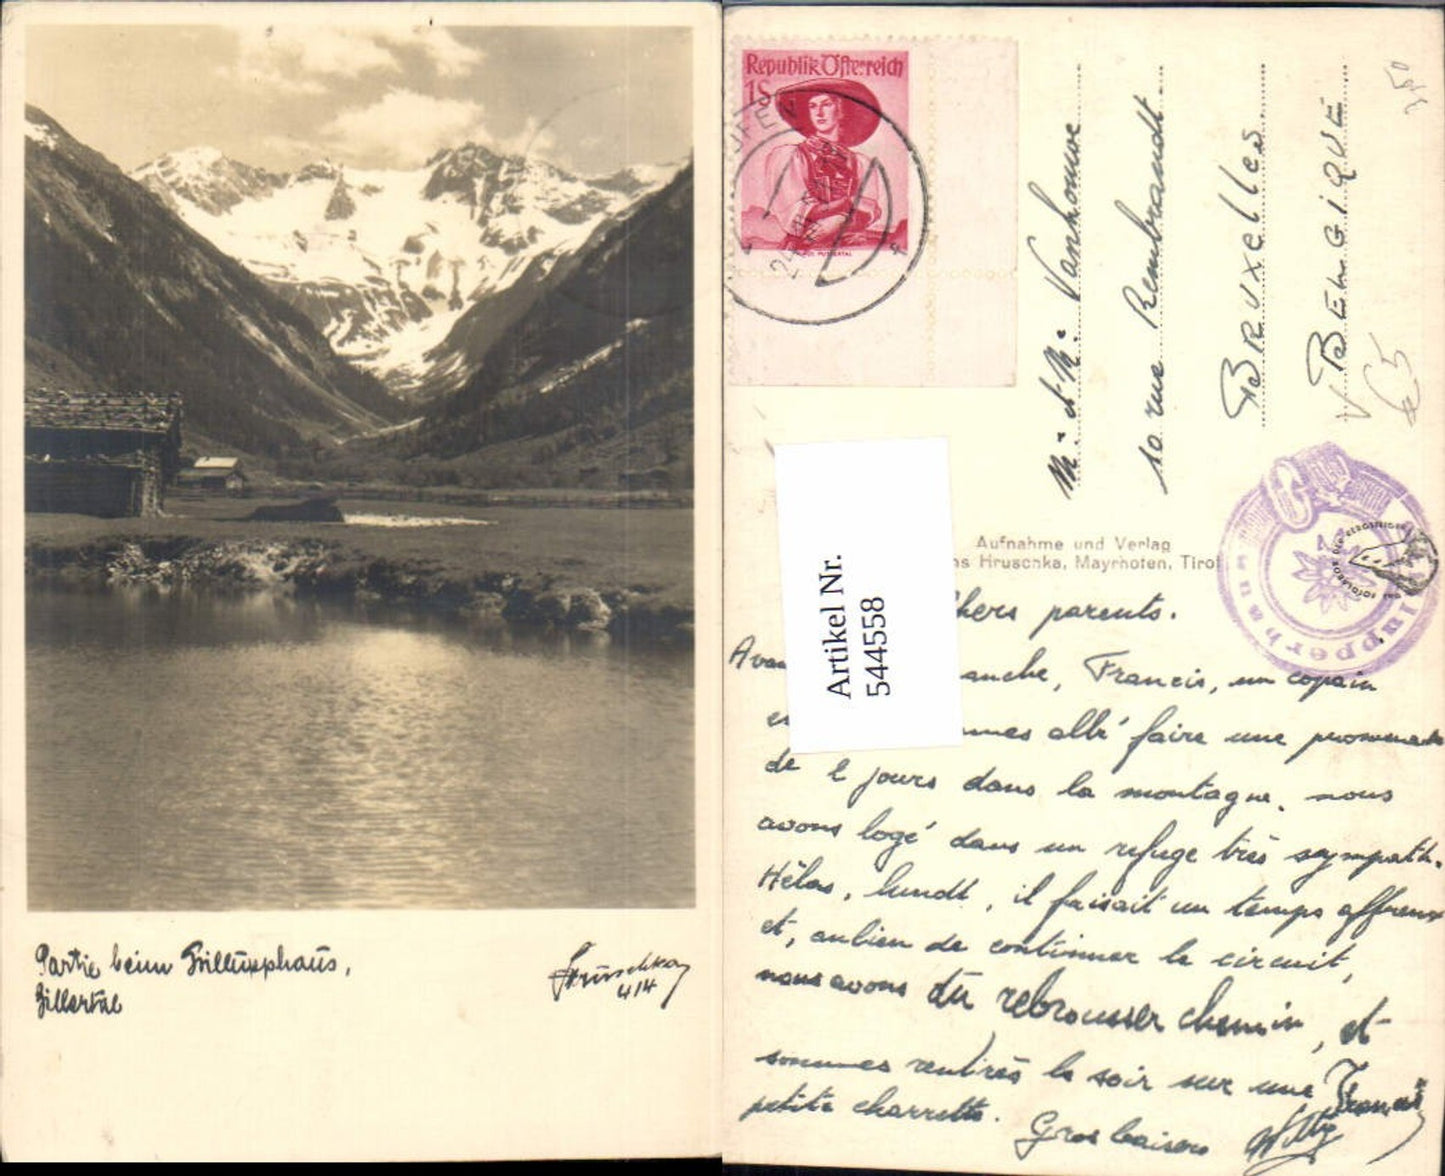 Partie beim Grillupphaus,
Zillertal
Hruschka
414
Republik Österreich
1S
M. et Me. Vanhouwe
10 rue Rembrandt
BRUXELLES
BELGIQUE
Artikel Nr.
544558
Aufnahme und Verlag
Hruschka, Mayrhofen, Tirol
chers parents.
Francis, un copain
allé faire une promenade
de 2 jours dans la montagne. nous
avons logé dans un refuge très sympath.
Hélas, lundi, il faisait un temps affreux
et, au lieu de continuer le circuit,
nous avons dû rebrousser chemin, et
sommes rentrés le soir sur une
petite charrette. Gros baisers Willy
Francis